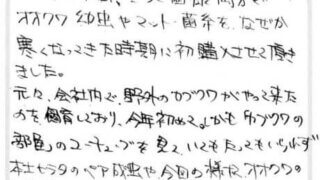 オオクワ幼虫やマット・菌糸を、なぜか
寒くなってきた時期に初購入させて頂き
ました。
元々、会社内で、野外のカブクワがやって来た
のを飼育しており、今年初めて、しかも「カブクワの
部屋」のユーチューブを見て、いてもたってもいられず
本土ヒラタのペア成虫や今回の様な、オオクワの